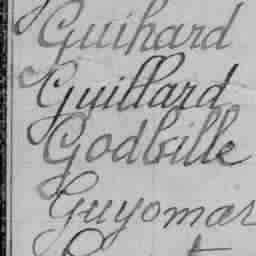 Guihard
Guillard
Godbille
Guyomar